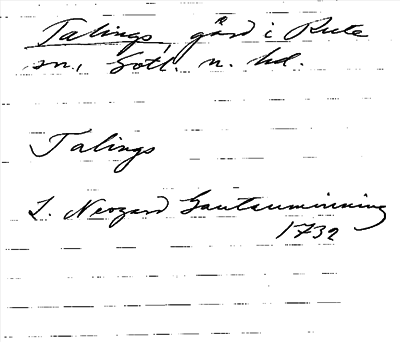 Talings, gård i Rute
sn., Gotl. n. hd.
Talings
L. Neogard Gautauminning
1732